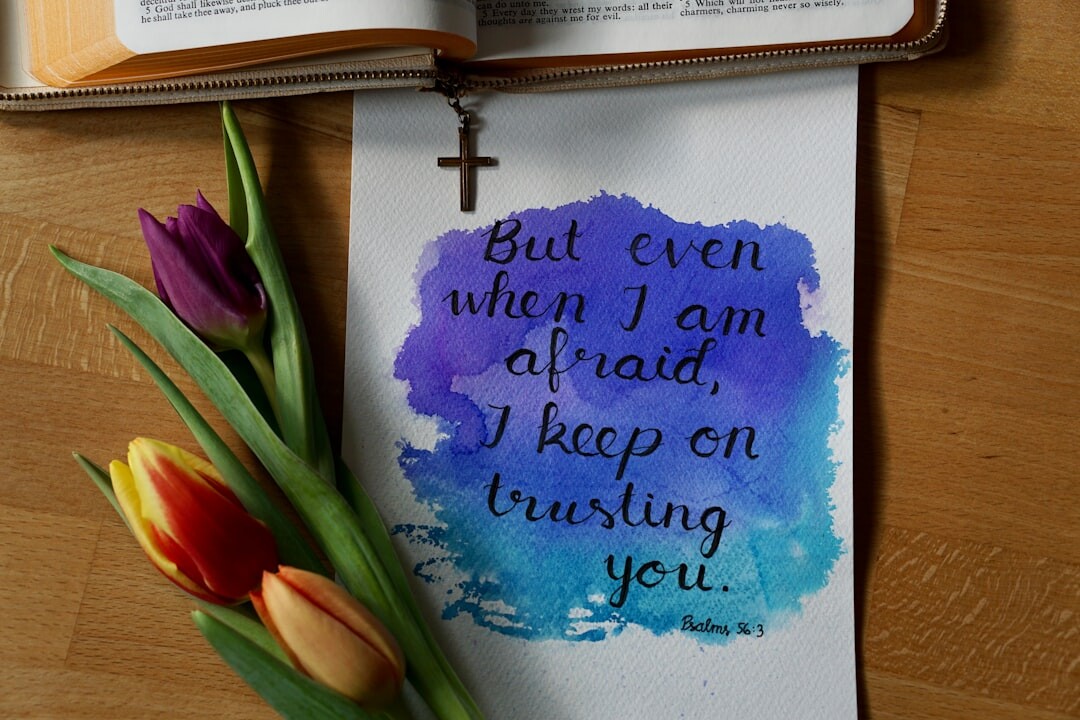 5 God shall likewise
he shall take thee away, and pluck thee
can do unto me.
5 Every day they wrest my words: all their
thoughts are against me for evil.
5 Which will not
charmers, charming never so wisely.
But even
when I am
afraid,
I keep on
trusting
you.
Psalms 56:3